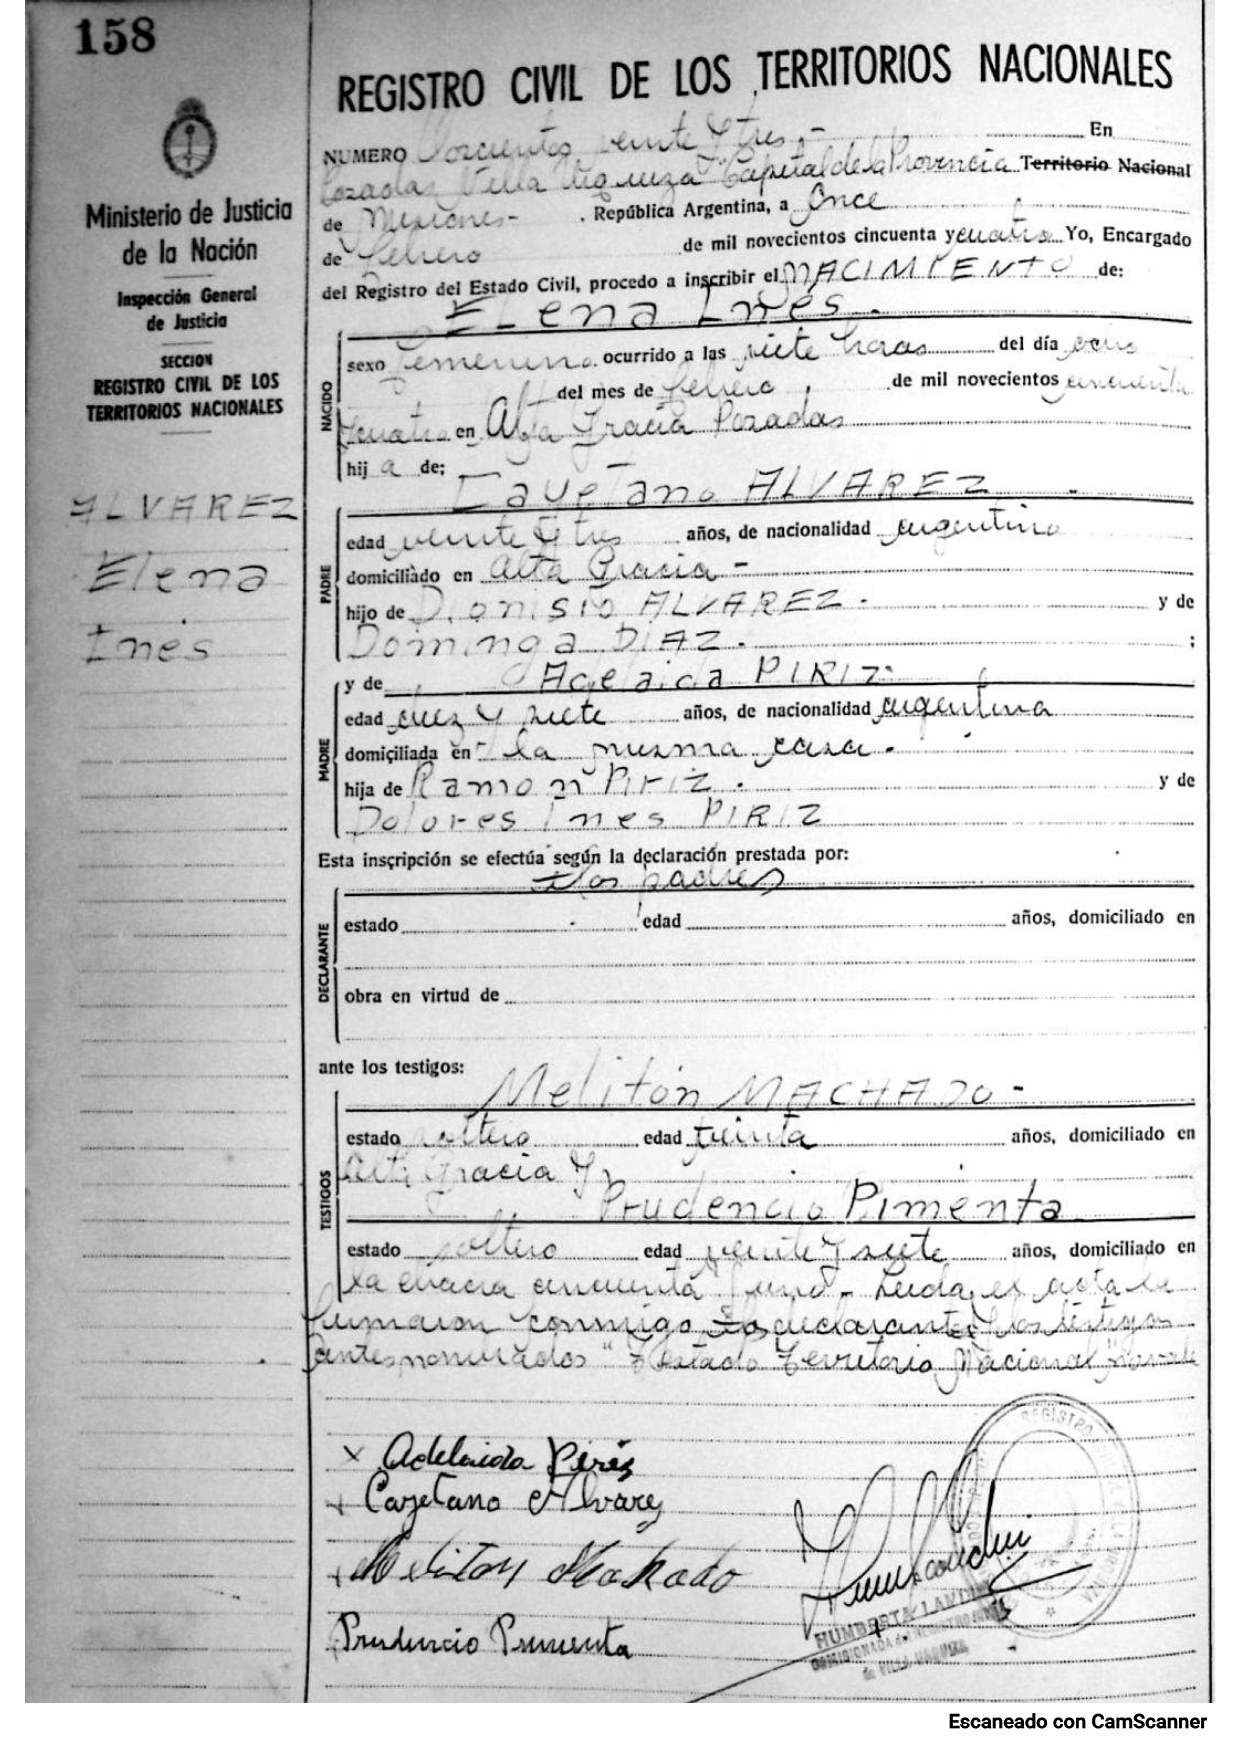 158
Ministerio de Justicia
de la Nación
Inspección General
de Justicia
SECCION
REGISTRO CIVIL DE LOS
TERRITORIOS NACIONALES
ALVAREZ
Elena
Inés
REGISTRO CIVIL DE LOS TERRITORIOS NACIONALES
NUMERO Doscientos veinte y tres.- En
Pozadas Villa Urquiza "Capital de la Provincia Territorio Nacional
de Misiones- . República Argentina, a Once
de febrero de mil novecientos cincuenta y cuatro Yo, Encargado
del Registro del Estado Civil, procedo a inscribir el NACIMIENTO de:
Elena Inés.
NACIDO
sexo femenino ocurrido a las siete horas del día ocho
del mes de febrero de mil novecientos cincuenta
y cuatro en Alta Gracia Pozadas
hij a de:
Cayetano ALVAREZ
PADRE
edad veinte y tres años, de nacionalidad argentino
domiciliado en Alta Gracia -
hijo de Dionisio ALVAREZ. y de
Dominga DIAZ. ;
y de Adelaida PIRIZ
MADRE
edad diez y siete años, de nacionalidad argentina
domiciliada en la misma casa.
hija de Ramon Piriz. y de
Dolores Ines PIRIZ
Esta inscripción se efectúa según la declaración prestada por:
los padres
DECLARANTE
estado edad años, domiciliado en
obra en virtud de
ante los testigos:
Melitón MACHADO -
TESTIGOS
estado soltero edad treinta años, domiciliado en
Alta Gracia y
Prudencio Pimenta
estado soltero edad veinte y siete años, domiciliado en
la chacra cincuenta y uno - Leida el acta la
firmaron conmigo los declarantes y los testigos
antes nombrados " Testado Territorio Nacional" no vale
x Adelaida Pires
x Cayetano Alvarez
Meliton Machado
Prudencio Pimenta
REGISTRO
HUMBERTA LANDI
COMISIONADA de REGISTRO
de VILLA URQUIZA
Escaneado con CamScanner